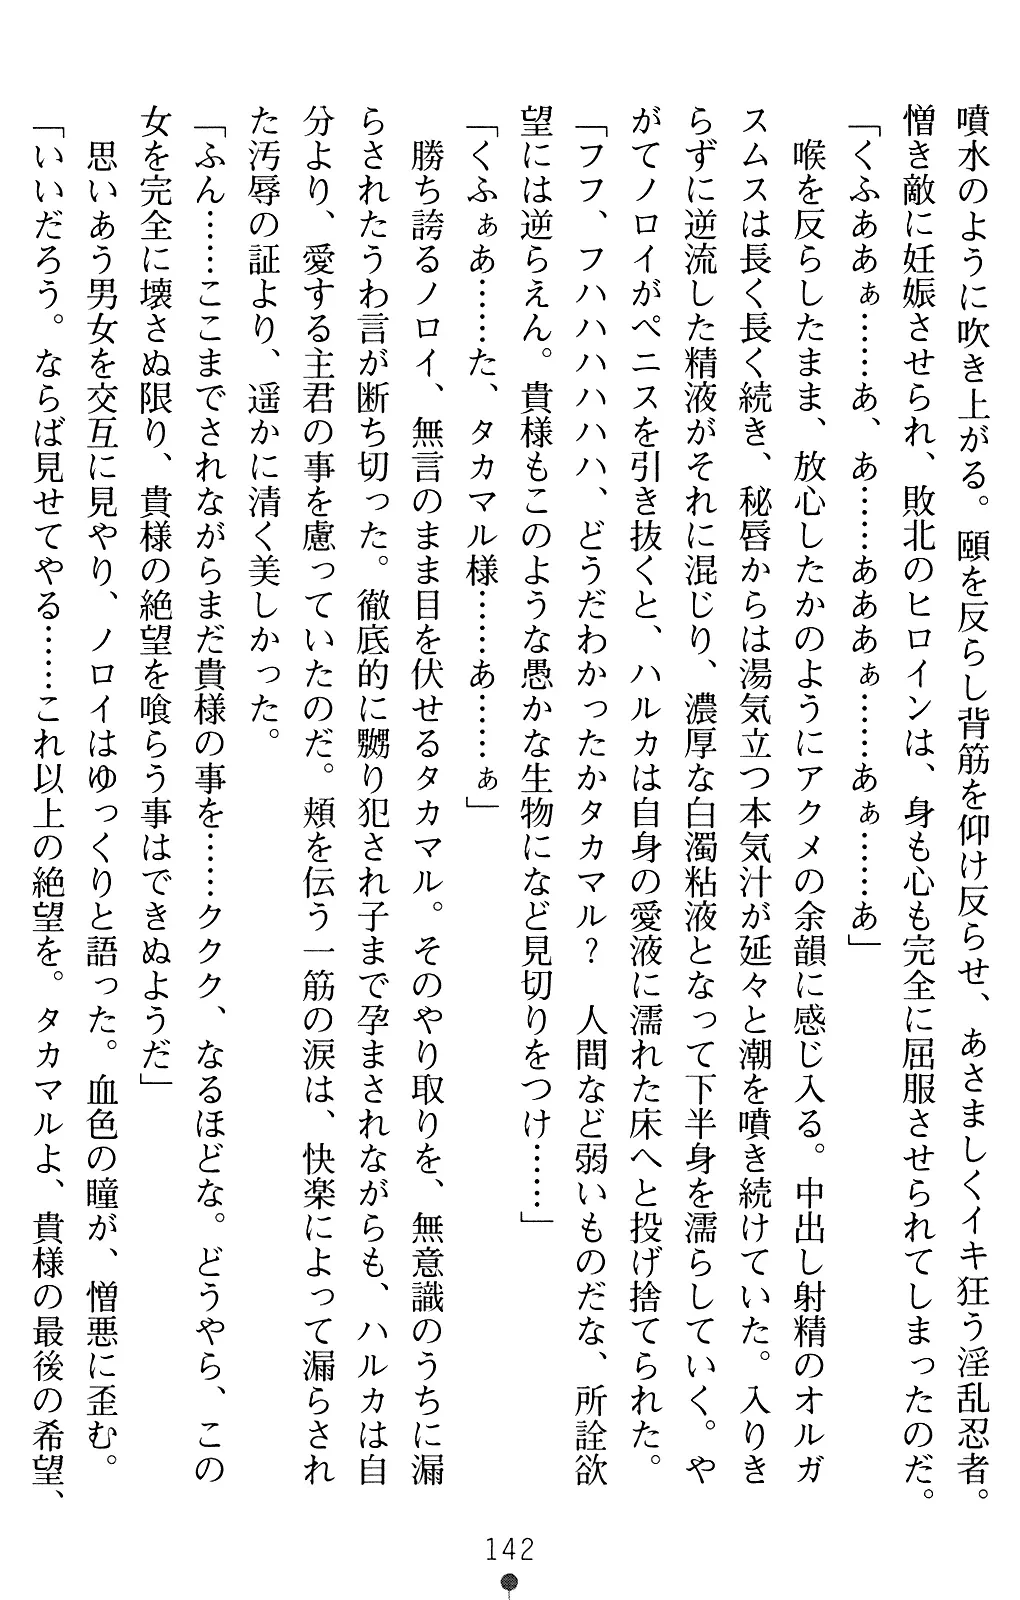 噴水のように吹き上がる。頤を反らし背筋を仰け反らせ、あさましくイキ狂う淫乱忍者。
憎き敵に妊娠させられ、敗北のヒロインは、身も心も完全に屈服させられてしまったのだ。
「くふああぁ……あ、あ……あああぁ……あぁ……あ」
喉を反らしたまま、放心したかのようにアクメの余韻に感じ入る。中出し射精のオルガ
スムスは長く長く続き、秘唇からは湯気立つ本気汁が延々と潮を噴き続けていた。入りき
らずに逆流した精液がそれに混じり、濃厚な白濁粘液となって下半身を濡らしていく。や
がてノロイがペニスを引き抜くと、ハルカは自身の愛液に濡れた床へと投げ捨てられた。
「フフ、フハハハハハ、どうだわかったかタカマル？　人間など弱いものだな、所詮欲
望には逆らえん。貴様もこのような愚かな生物になど見切りをつけ……」
「くふぁあ……た、タカマル様……あ……ぁ」
勝ち誇るノロイ、無言のまま目を伏せるタカマル。そのやり取りを、無意識のうちに漏
らされたうわ言が断ち切った。徹底的に嬲り犯され子まで孕まされながらも、ハルカは自
分より、愛する主君の事を慮っていたのだ。頬を伝う一筋の涙は、快楽によって漏らされ
た汚辱の証より、遥かに清く美しかった。
「ふん……ここまでされながらまだ貴様の事を……ククク、なるほどな。どうやら、この
女を完全に壊さぬ限り、貴様の絶望を喰らう事はできぬようだ」
思いあう男女を交互に見やり、ノロイはゆっくりと語った。血色の瞳が、憎悪に歪む。
「いいだろう。ならば見せてやる……これ以上の絶望を。タカマルよ、貴様の最後の希望、
142